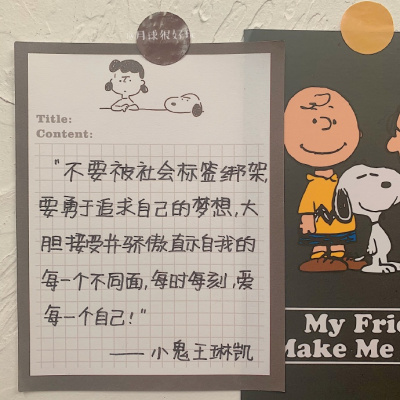 Title:
Content:
"不要被社会标签绑架,
要勇于追求自己的梦想,大
胆接受并骄傲直示自我的
每一个不同面,每时每刻,爱
每一个自己!"
——小鬼王琳凯
My Frie
Make Me